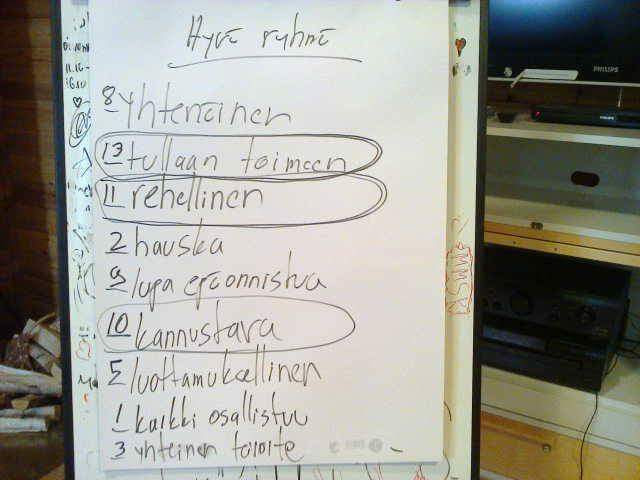 Hyvä ryhmä
8 yhtenäinen
13 tullaan toimeen
11 rehellinen
2 hauska
9 lupa epäonnistua
10 kannustava
5 luottamuksellinen
1 kaikki osallistuu
3 yhteinen tavoite
PHILIPS